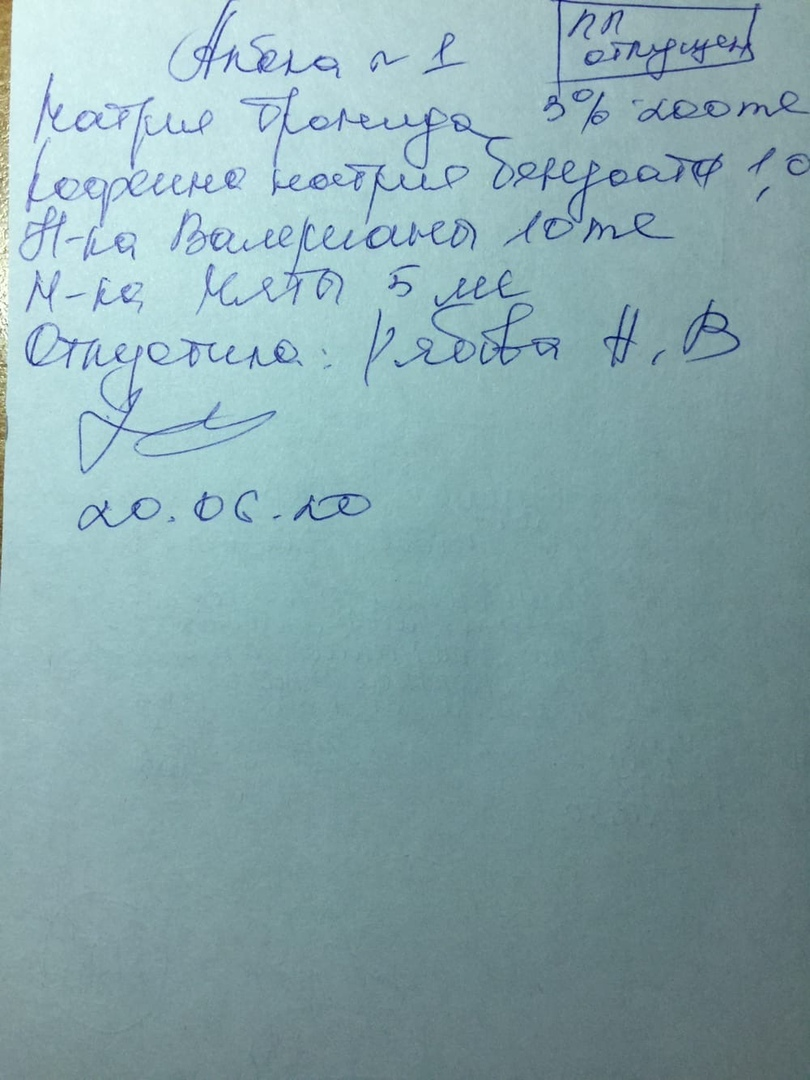 Аптека № 1
ПП
отпущен
Натрия бромида 3% 200 мл
Кофеина натрия бензоата 1,0
Н-ка Валерианы 10 мл
М-ка Мяты 5 мл
Отпустила: Рябова Н. В
20.06.20